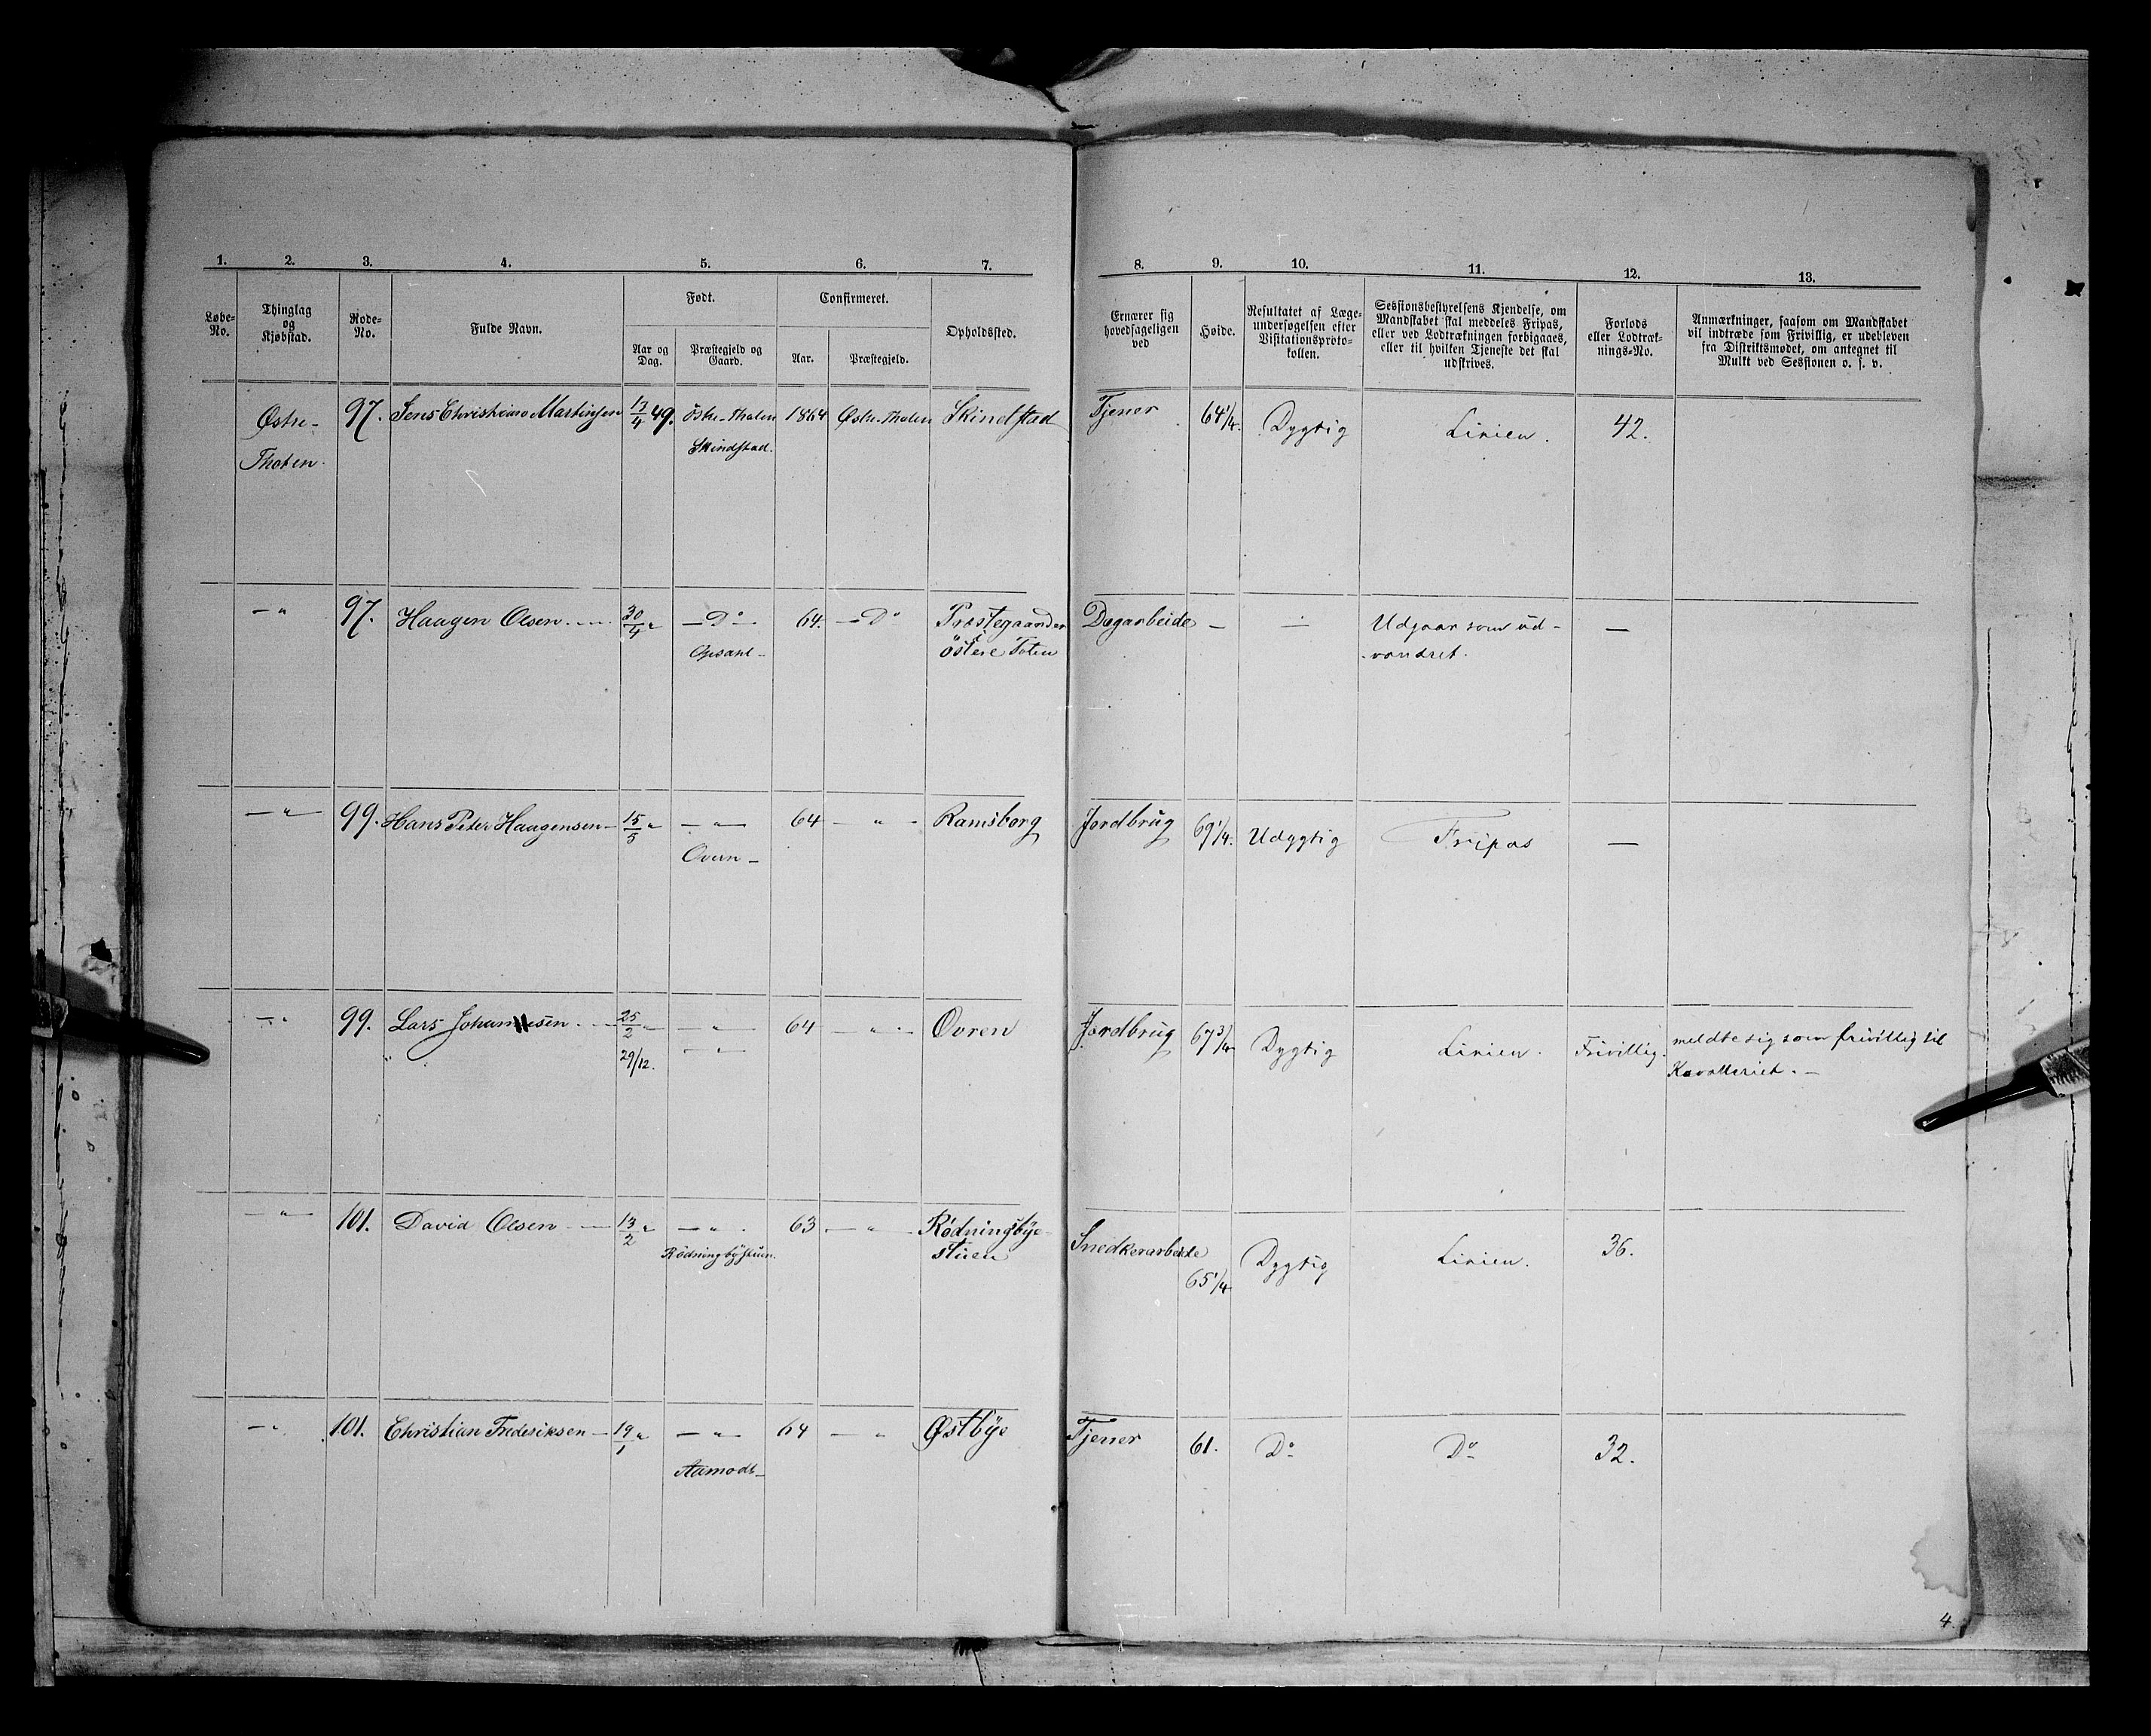 1. 2. 3. 4. 5. 6. 7. 8. 9. 10. 11. 12. 13.
Løbe-No.
Thinglag og Kjøbstad.
Rode-No.
Fulde Navn.
Født.
Aar og Dag.
Præstegjeld og Gaard.
Confirmeret.
Aar.
Præstegjeld.
Opholdssted.
Ernærer sig hovedsageligen ved
Høide.
Resultatet af Læge-undersøgelsen efter Visitationsproto-kollen.
Sessionsbestyrelsens Kjendelse, om Mandskabet skal meddeles Fripas, eller ved Lodtrækningen forbigaaes, eller til hvilken Tjeneste det skal udskrives.
Forlods eller Lodtræk-nings-No.
Anmærkninger, saasom om Mandskabet vil indtræde som Frivillig, er udebleven fra Distriktsmødet, om antegnet til Mulkt ved Sessionen o. s. v.
Østre- 97. Jens Christian Martinsen 17/4 49. Östre-Thoten 1864 Østre-Thoten Skindstad Tjener 64 1/4. Dygtig Linien. 42.
Thoten. Skindstad.
— " 97. Haagen Olsen. — 30/4 " — Do — 64. — Do Præstegaarden Dagarbeide — — Udgaar som ud- —
Opsahl — östere Toten vandret.
— " — 99. Hans Peter Haagensen — 15/5 " — " — 64 — " — Ramsborg Jordbrug 69 1/4. Udygtig Fripas —
Overn —
— " 99. Lars Johannesen. — 25/2 — — " — 64 — " — Ovren Jordbrug 67 3/4 Dygtig Linien. Frivillig. meldte sig som frivillig til
" 29/12. — " — Kavalleriet. —
— " — 101. David Olsen — 13/2 " — " . 63 — " — Rödningbye- Snedkerarbeide 65 1/4 Dygtig Linien. 36.
Rödningbystuen. stuen
— " 101. Christian Frederiksen — 19/1 " — " — 64 — " Østbye Tjener 61. Do Do 32.
Aamodt —
4.